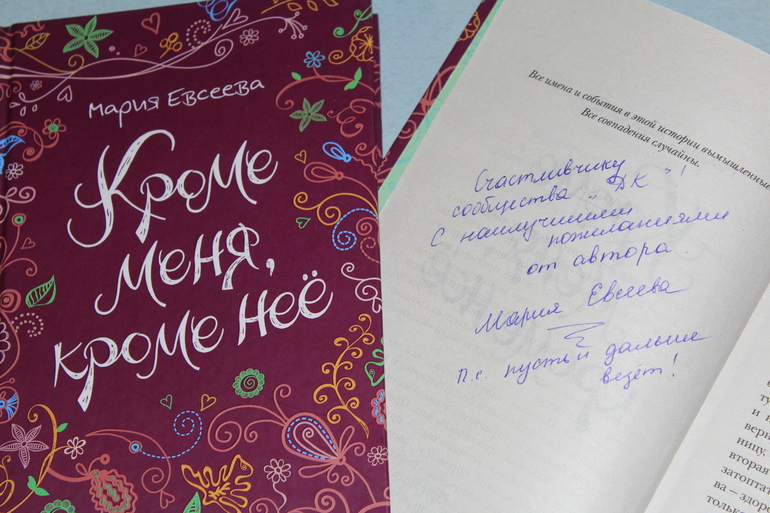 Мария Евсеева
Кроме
меня,
кроме неё
Все имена и события в этой истории вымышленные.
Все совпадения случайны.
Счастливчику
сообщества "ДК"!
С наилучшими
пожеланиями
от автора.
Мария Евсеева
п.с. пусть и дальше
везёт!
ту
и н
верн
ницу,
вторая
затоптат
ва – здоро
только